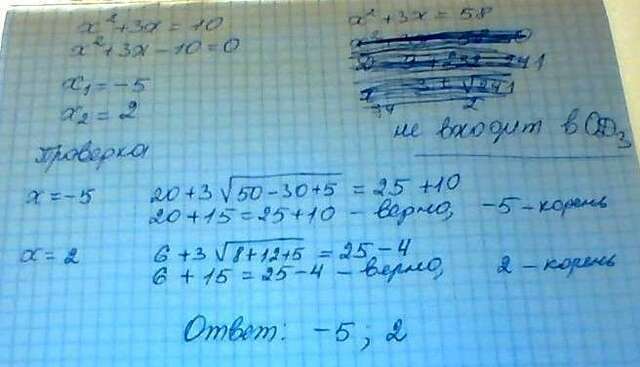 x² + 3x = 10
x² + 3x - 10 = 0
x₁ = -5
x₂ = 2
x² + 3x = 58
не входит в ОДЗ
Проверка
x = -5 20 + 3√(50 - 30 + 5) = 25 + 10
20 + 15 = 25 + 10 - верно, -5 - корень
x = 2 6 + 3√(8 + 12 + 5) = 25 - 4
6 + 15 = 25 - 4 - верно, 2 - корень
Ответ: -5; 2